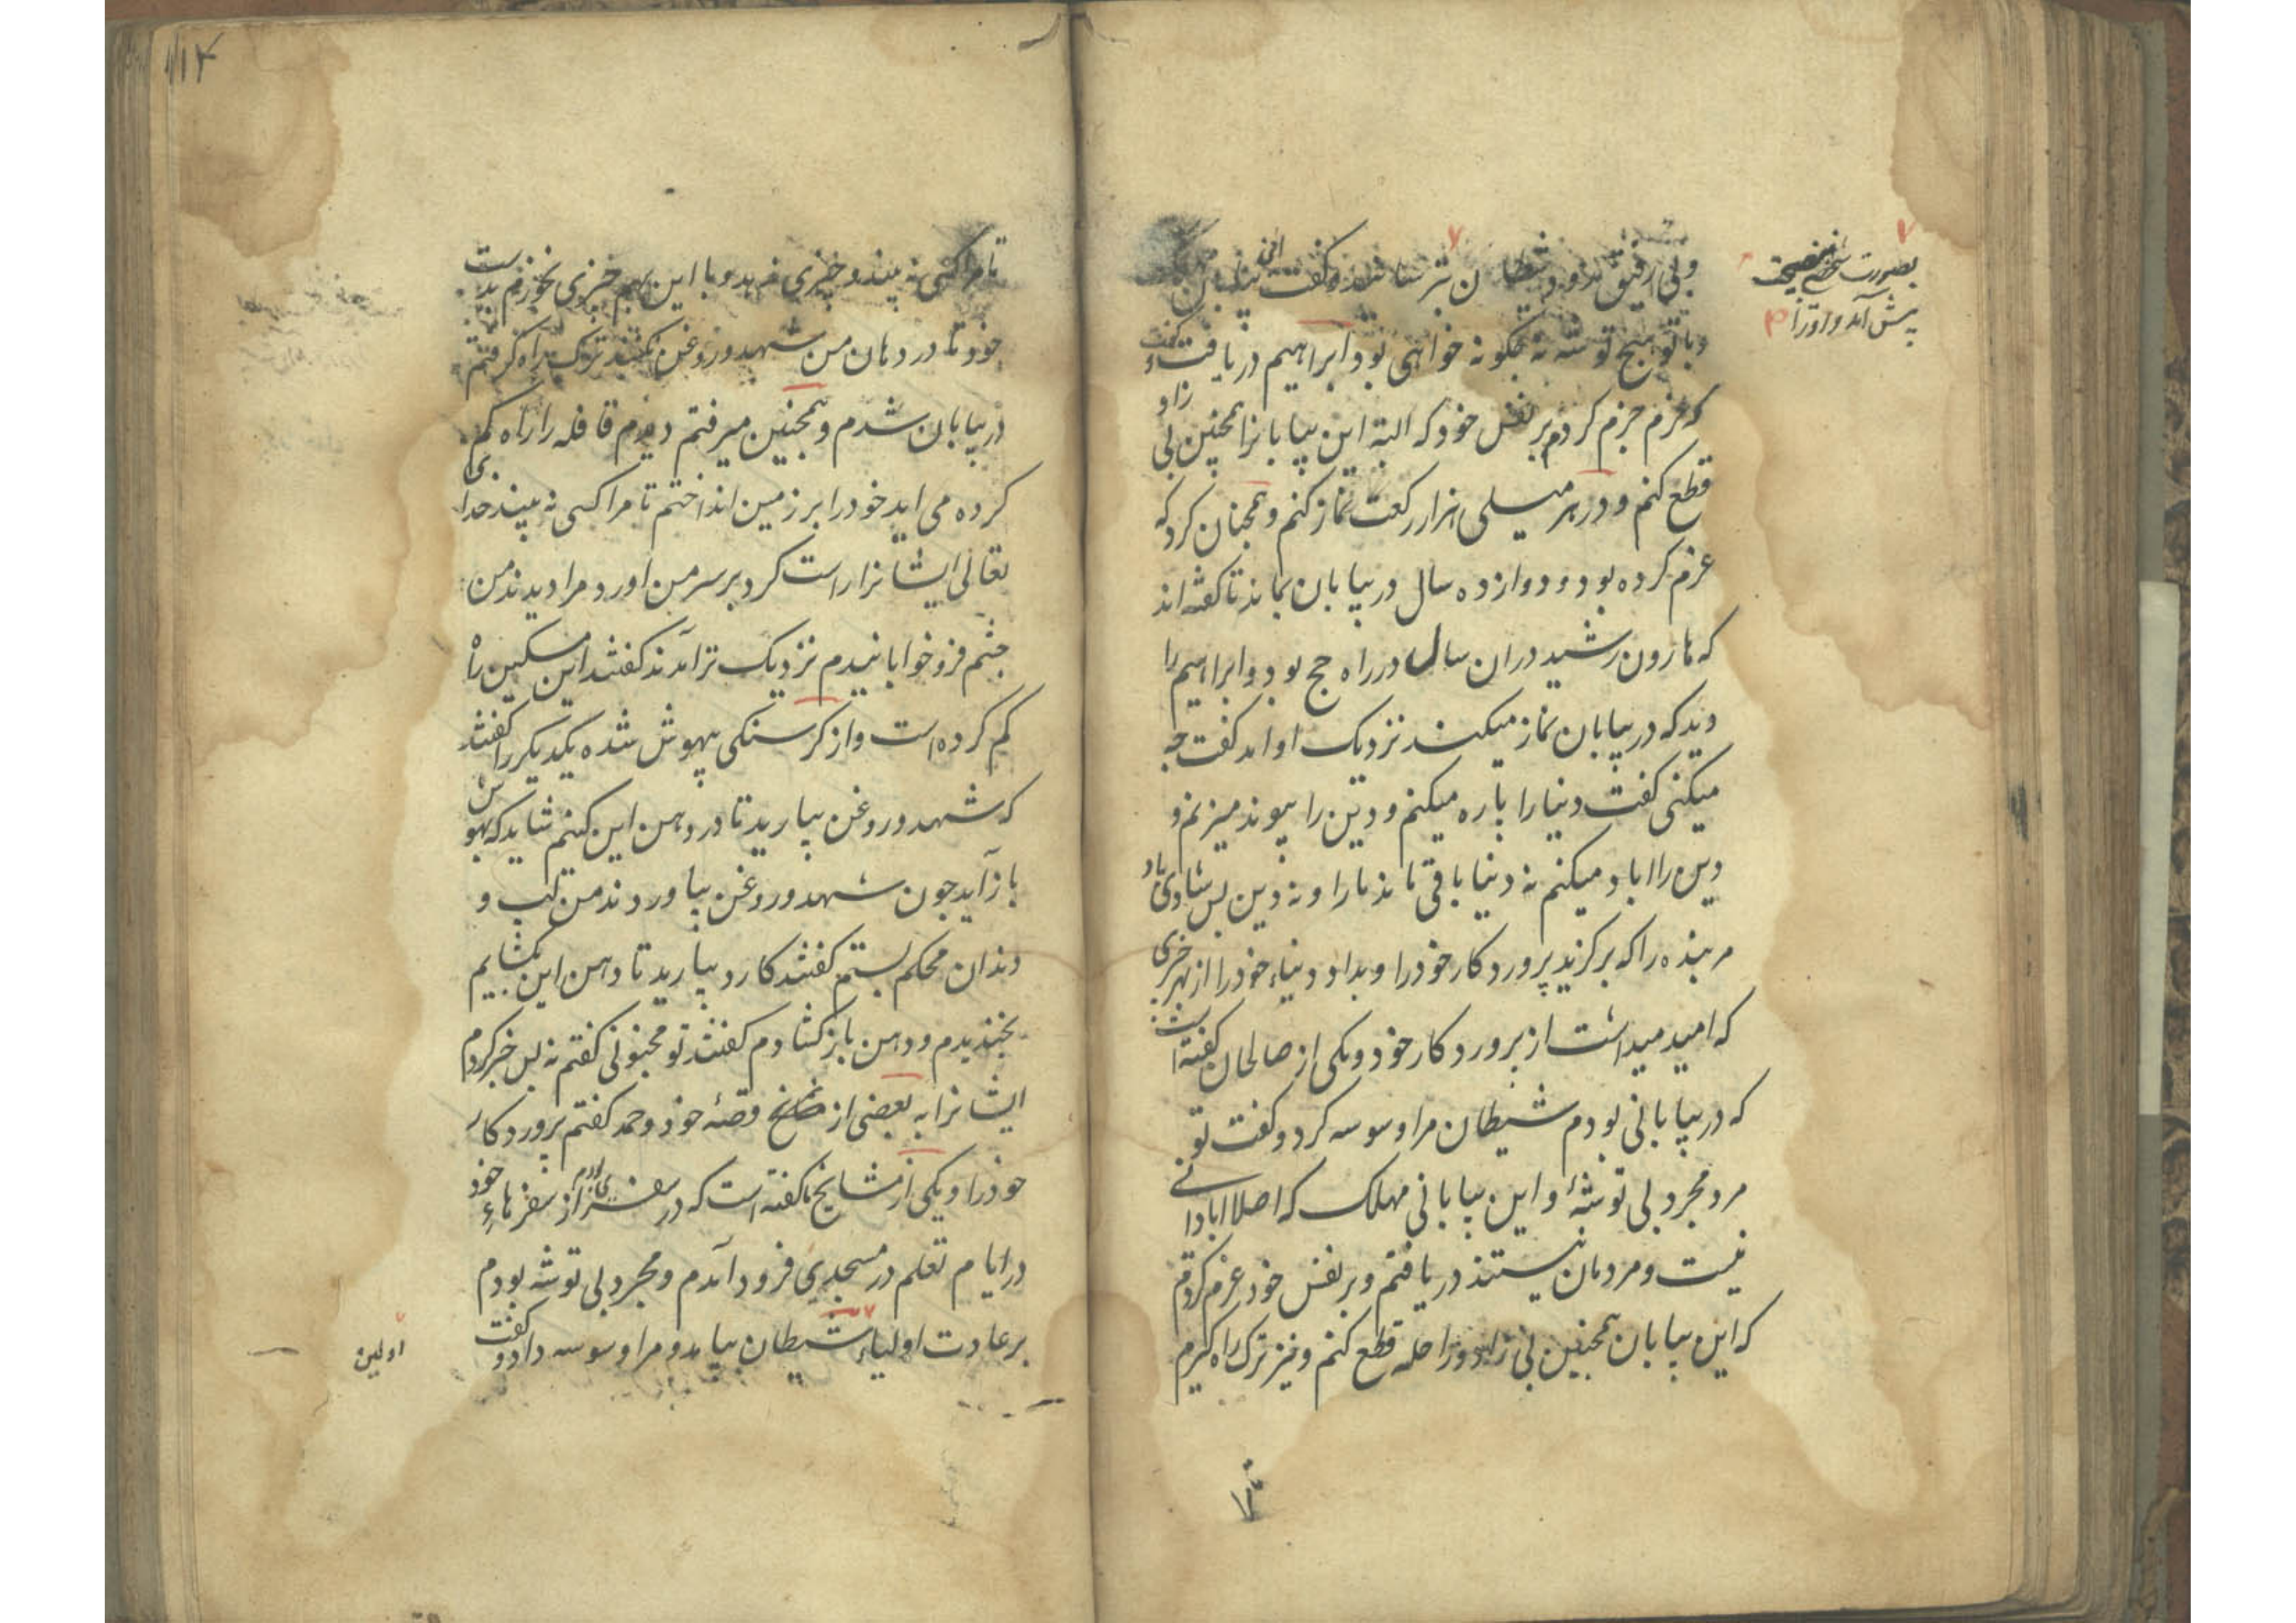 و بی رفیق بود و شیطان بترسانیدن و گفت این بیابان
بصورت شخص نصیحت
پیش آمد و اورا
و با تو هیچ توشه نه چگونه خواهی بود ابراهیم دریافت گفت
که عزم جزم کردم بر نفس خود که البته این بیابانرا همچنین بی زاد و
قطع کنم و در هر میلی هزار رکعت نماز کنم و همچنان کرد که
عزم کرده بود و دوازده سال در بیابان بماند تا گفته اند
که هارون رشید دران سال در راه حج بود و ابراهیم را
دید که در بیابان نماز میکند نزدیک او امد گفت چه
میکنی گفت دنیا را پاره میکنم و دین را پیوند میزنم و
دین را اباد میکنم نه دنیا باقی ماند مارا و نه دین پس شادی باد
مر بنده را که برگزید پروردکار خود را و بداد دنیاء خود را از بهر چیزی
که امید میداشت از پروردکار خود و یکی از صالحان گفته است
که در بیابانی بودم شیطان مرا وسوسه کرد و گفت تو
مرد مجرد بی توشهٔ و این بیابانی مهلک که اصلا ابادانے
نیست و مردمان نیستند دریافتم و بر نفس خود عزم کردم
که این بیابان همچنین بی زاد و راحله قطع کنم و نیز ترک راه گیرم
۱۱۴
تا مرا کسی نه بیند و چیزی ندهد و با این هم چیزی نخورم بدست
خود تا در دهان من شهد و روغن نکنند ترک راه گرفتم
در بیابان شدم و همچنین میرفتم دیدم قافله را راه گم
کرده می اید خود را بر زمین انداختم تا مرا کسی نه بیند خدای
تعالی ایشانرا راست کرد بر سر من اورد مرا دیدند من
چشم فرو خوابانیدم نزدیک تر آمدند گفتند این مسکین راه
گم کرده است و از گرسنگی بیهوش شده یکدیگر را گفتند
که شهد و روغن بیارید تا در دهن این کنیم شاید که بهوش
باز آید چون شهد و روغن بیاوردند من لب و
دندان محکم بستم گفتند کارد بیارید تا دهن این بکشایم
بخندیدم و دهن باز کشادم گفتند تو مجنونی گفتم نه پس خبر کردم
ایشانرا به بعضی از قصهٔ خود و حمد گفتم پروردکار
خود را و یکی از مشایخ ما گفته است که در سفری از سفرهاء خود
در ایام تعلم در مسجدی فرود آمدم و مجرد بی توشه بودم
بر عادت اولیاء شیطان بیامد و مرا وسوسه داد و گفت
اولین